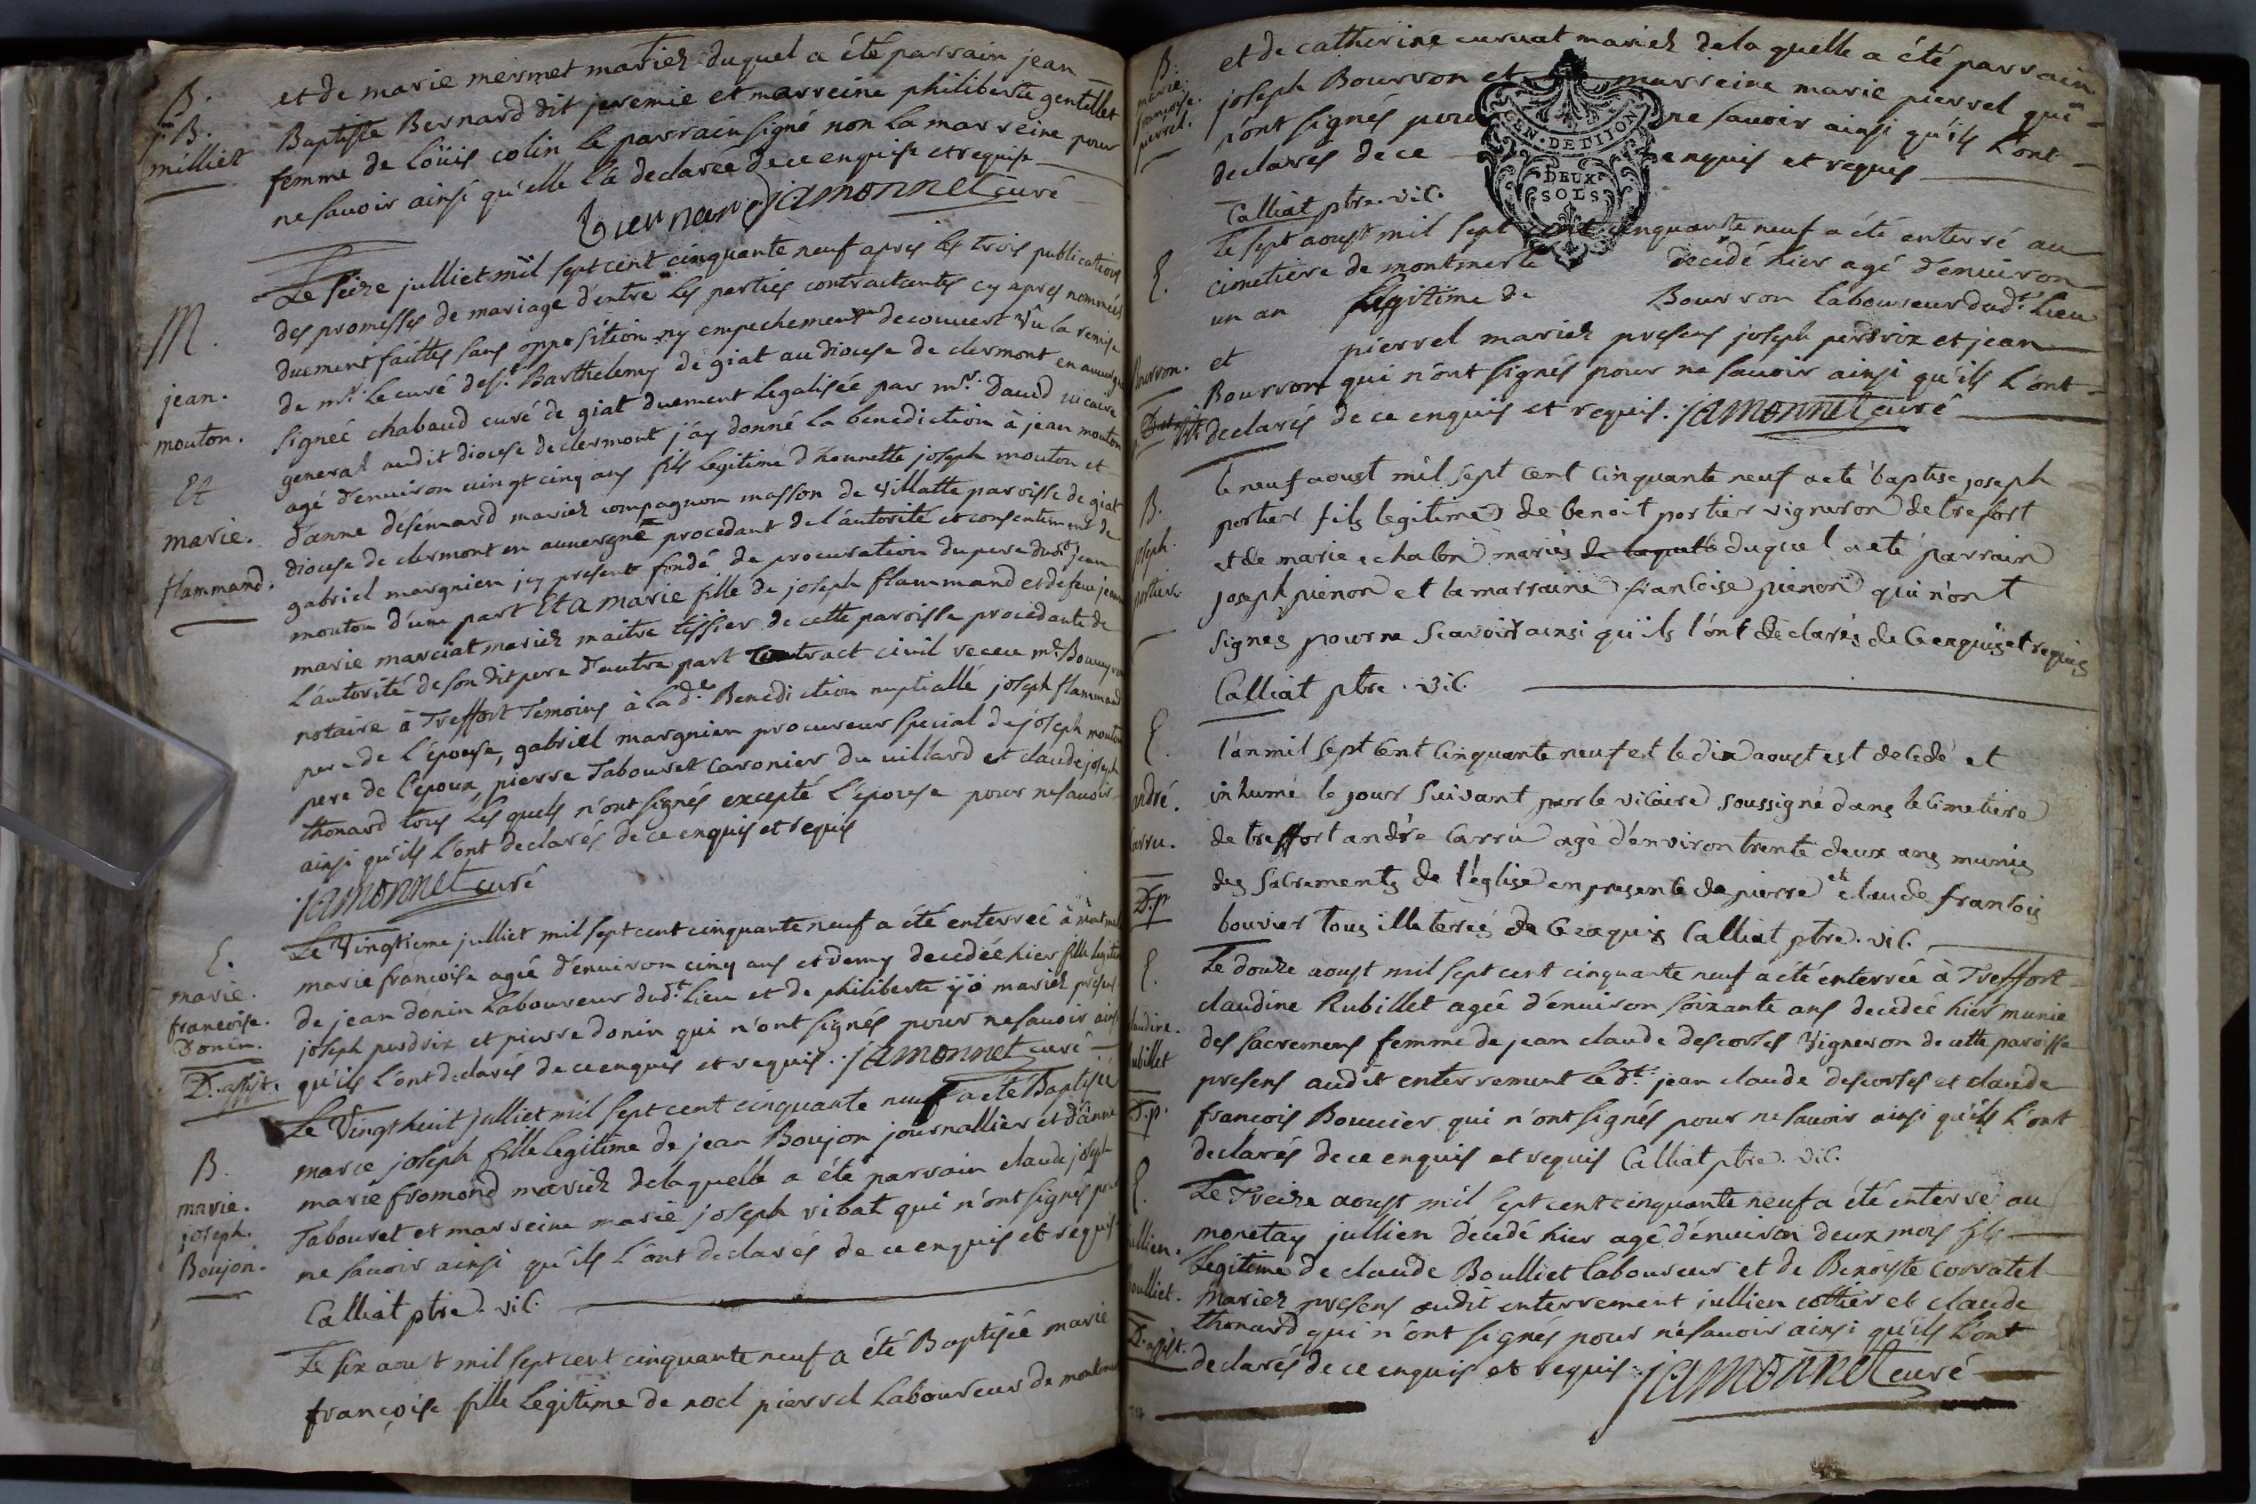 B.
j. B.
milliet
et de marie mermet mariez duquel a été parrain jean
Baptiste Bernard dit jeremie et marreine philiberte gentellet
femme de loüis colin le parrain signé non la marreine pour
ne savoir ainsi qu'elle l'a declarée de ce enquise et requise
Bernard jamonnet curé
M.
jean.
mouton.
Et
marie.
flammand.
Le seize julliet mil sept cent cinquante neuf apres les trois publications
des promesses de mariage d'entre les parties contractantes cy apres nommées
duement faittes sans opposition ny empechement decouvert vû la remise
de mr. le curé de st. Barthelemy de giat au diocese de clermont en auvergne
signée chabaud curé de giat duement legalisée par mr. David vicaire
general audit diocese de clermont j'ay donné la benediction à jean mouton
agé d'environ vingt cinq ans fils legitime d'honnette joseph mouton et
d'anne desémard mariez compagnon masson de villatte paroisse de giat
diocese de clermont en auvergne procedant de l'autorité et consentement de
gabriel margnien icy present fondé de procuration du pere dudt. jean
mouton d'une part Et a marie fille de joseph flammand et de feue jeanne
marie marciat mariez maitre tissier de cette paroisse procedante de
l'autorité de son dit pere d'autre part contract civil receu me.
notaire à Treffort Temoins à la de. Benediction nuptialle joseph flammand
pere de l'épouse, gabriel margnien procureur special de joseph mouton
pere de l'époux, pierre Tabouret caronier du villard et claude joseph
thonard tous lesquels n'ont signés excepté l'épouse pour ne savoir
ainsi qu'ils l'ont declarés de ce enquis et requis
jamonnet curé
E.
marie.
francoise.
Donin.
D. assist.
Le Vingtieme julliet mil sept cent cinquante neuf a été enterrée à
marie françoise agée d'environ cinq ans et demy decedée hier fille legitime
de jean donin laboureur dudt. lieu et de philiberte mariez presens
joseph perdrix et pierre donin qui n'ont signés pour ne savoir ainsi
qu'ils l'ont declarés de ce enquis et requis. jamonnet curé
B.
marie.
joseph.
Boujon.
Le Vingt huit julliet mil sept cent cinquante neuf a été Baptisée
marie joseph fille legitime de jean Boujon journallier et d'anne
marie fromond mariez de laquelle a été parrain claude joseph
Tabouret et marreine marie joseph vibat qui n'ont signés pour
ne savoir ainsi qu'ils l'ont declarés de ce enquis et requis
Calliat ptre. vic.
Le six aoust mil sept cent cinquante neuf a été Baptisée marie
françoise fille legitime de noel pierrel laboureur de
B.
marie.
francoise.
pierrel.
et de catherine curvat mariez de la quelle a été parrain
joseph Bourron et marreine marie pierrel qui
n'ont signés pour ne savoir ainsi qu'ils l'ont
declarés de ce enquis et requis
Calliat ptre. vic.
GEN. DE DIJON
DEUX
SOLS
E.
Bourron.
Le sept aoust mil sept cent cinquante neuf a été enterré au
cimetiere de montmerle decédé hier agé d'environ
un an legitime de Bourron laboureur dudt. lieu
et pierrel mariez presens joseph perdrix et jean
Bourron qui n'ont signés pour ne savoir ainsi qu'ils l'ont
declarés de ce enquis et requis. jamonnet curé
B.
joseph.
portier.
le neuf aoust mil sept cent cinquante neuf a eté baptise joseph
portier fils legitime de benoit portier vigneron de trefort
et de marie chalon mariés de laquelle duquel a eté parrain
joseph pienon et la marraine francoise pienon qui n'ont
signes pour ne scavoir ainsi qu'ils l'ont declarés de ce enquis et requis
Calliat ptre. vic.
E.
andré.
carru.
D. p
l'an mil sept cent cinquante neuf et le dix aoust est decedé et
inhumé le jour suivant par le vicaire soussigné dans le cimetiere
de treffort andre carru agé d'environ trente deux ans munis
des sacrements de l'église en presente de pierre et claude francois
bouvier tous illeterés de ce enquis Calliat ptre. vic.
E.
claudine.
Rubillet
D. p.
Le douze aoust mil sept cent cinquante neuf a été enterrée à Treffort
claudine Rubillet agée d'environ soixante ans decedée hier munie
des sacremens femme de jean claude descortes vigneron de cette paroisse
presens audit enterrement le dt. jean claude descortes et claude
francois Bouvier qui n'ont signés pour ne savoir ainsi qu'ils l'ont
declarés de ce enquis et requis Calliat ptre. vic.
E.
jullien.
Boulliet.
D. assist.
Le Treize aoust mil sept cent cinquante neuf a été enterré au
monetay jullien décedé hier agé d'environ deux mois fils
legitime de claude Boulliet laboureur et de Benoiste corratel
mariez presens audit enterrement jullien cottier et claude
thonard qui n'ont signés pour ne savoir ainsi qu'ils l'ont
declarés de ce enquis et requis. jamonnet curé